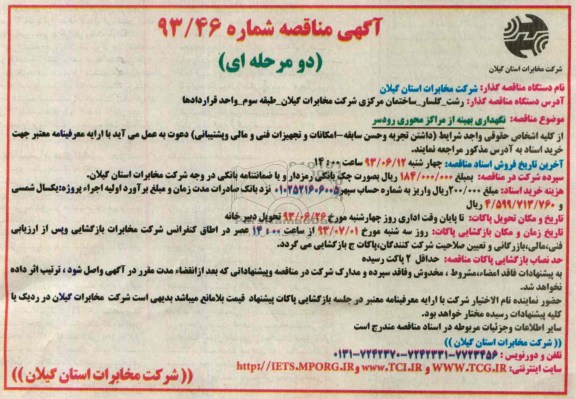 آگهی مناقصه شماره ۹۳/۴۶
(دو مرحله ای)
شرکت مخابرات استان گیلان
نام دستگاه مناقصه گذار: شرکت مخابرات استان گیلان
آدرس دستگاه مناقصه گذار: رشت_گلسار_ساختمان مرکزی شرکت مخابرات گیلان_طبقه سوم_واحد قراردادها
موضوع مناقصه: نگهداری بهینه از مراکز محوری رودسر
از کلیه اشخاص حقوقی واجد شرایط (داشتن تجربه وحسن سابقه-امکانات و تجهیزات فنی و مالی وپشتیبانی) دعوت به عمل می آید با ارایه معرفینامه معتبر جهت
خرید اسناد به آدرس مذکور مراجعه نمایند.
آخرین تاریخ فروش اسناد مناقصه: چهار شنبه ۹۳/۰۶/۱۲ ساعت ۱۴:۰۰
سپرده شرکت در مناقصه: بمبلغ ۱۸۴/۰۰۰/۰۰۰ ریال بصورت چک بانکی رمزدار و یا ضمانتنامه بانکی در وجه شرکت مخابرات استان گیلان.
هزینه خرید اسناد: مبلغ ۲۰۰/۰۰۰ریال واریز به شماره حساب سپهر۰۱۰۲۵۲۱۶۰۶۰۰۵ نزد بانک صادرات مدت زمان و مبلغ برآورد اولیه اجراء پروژه:یکسال شمسی
و ۴/۵۹۹/۷۱۳/۷۶۰ ریال
تاریخ و مکان تحویل پاکات: تا پایان وقت اداری روز چهارشنبه مورخ ۹۳/۰۶/۲۶ تحویل دبیرخانه
تاریخ زمان و مکان بازگشایی پاکات: روز سه شنبه مورخ ۹۳/۰۷/۰۱ از ساعت ۱۴:۰۰ عصر در اطاق کنفرانس شرکت مخابرات بازگشایی وپس از ارزیابی
فنی،مالی،بازرگانی و تعیین صلاحیت شرکت کنندگان،پاکات ج بازگشایی می گردد.
حد نصاب بازگشایی پاکات مناقصه: حداقل ۲ پاکت رسیده
به پیشنهادات فاقد امضاء،مشروط ، مخدوش وفاقد سپرده و مدارک شرکت در مناقصه وپیشنهاداتی که بعد ازانقضاء مدت مقرر در آگهی واصل شود ، ترتیب اثر داده
نخواهد شد.
حضور نماینده تام الاختیار شرکت با ارایه معرفینامه معتبر در جلسه بازگشایی پاکات پیشنهاد قیمت بلامانع میباشد بدیهی است شرکت مخابرات گیلان در ردیک یا
کلیه پیشنهادات رسیده مختار خواهد بود.
سایر اطلاعات وجزئیات مربوطه در اسناد مناقصه مندرج است
(( شرکت مخابرات استان گیلان ))
تلفن و دورنویس : ۷۷۲۳۴۵۶-۷۲۴۲۳۳۱-۷۲۴۲۳۷۰-۰۱۳۱
سایت اینترنتی: WWW.TCG.IR و www.TCI.IR وhttp//IETS.MPORG.IR
(( شرکت مخابرات استان گیلان ))